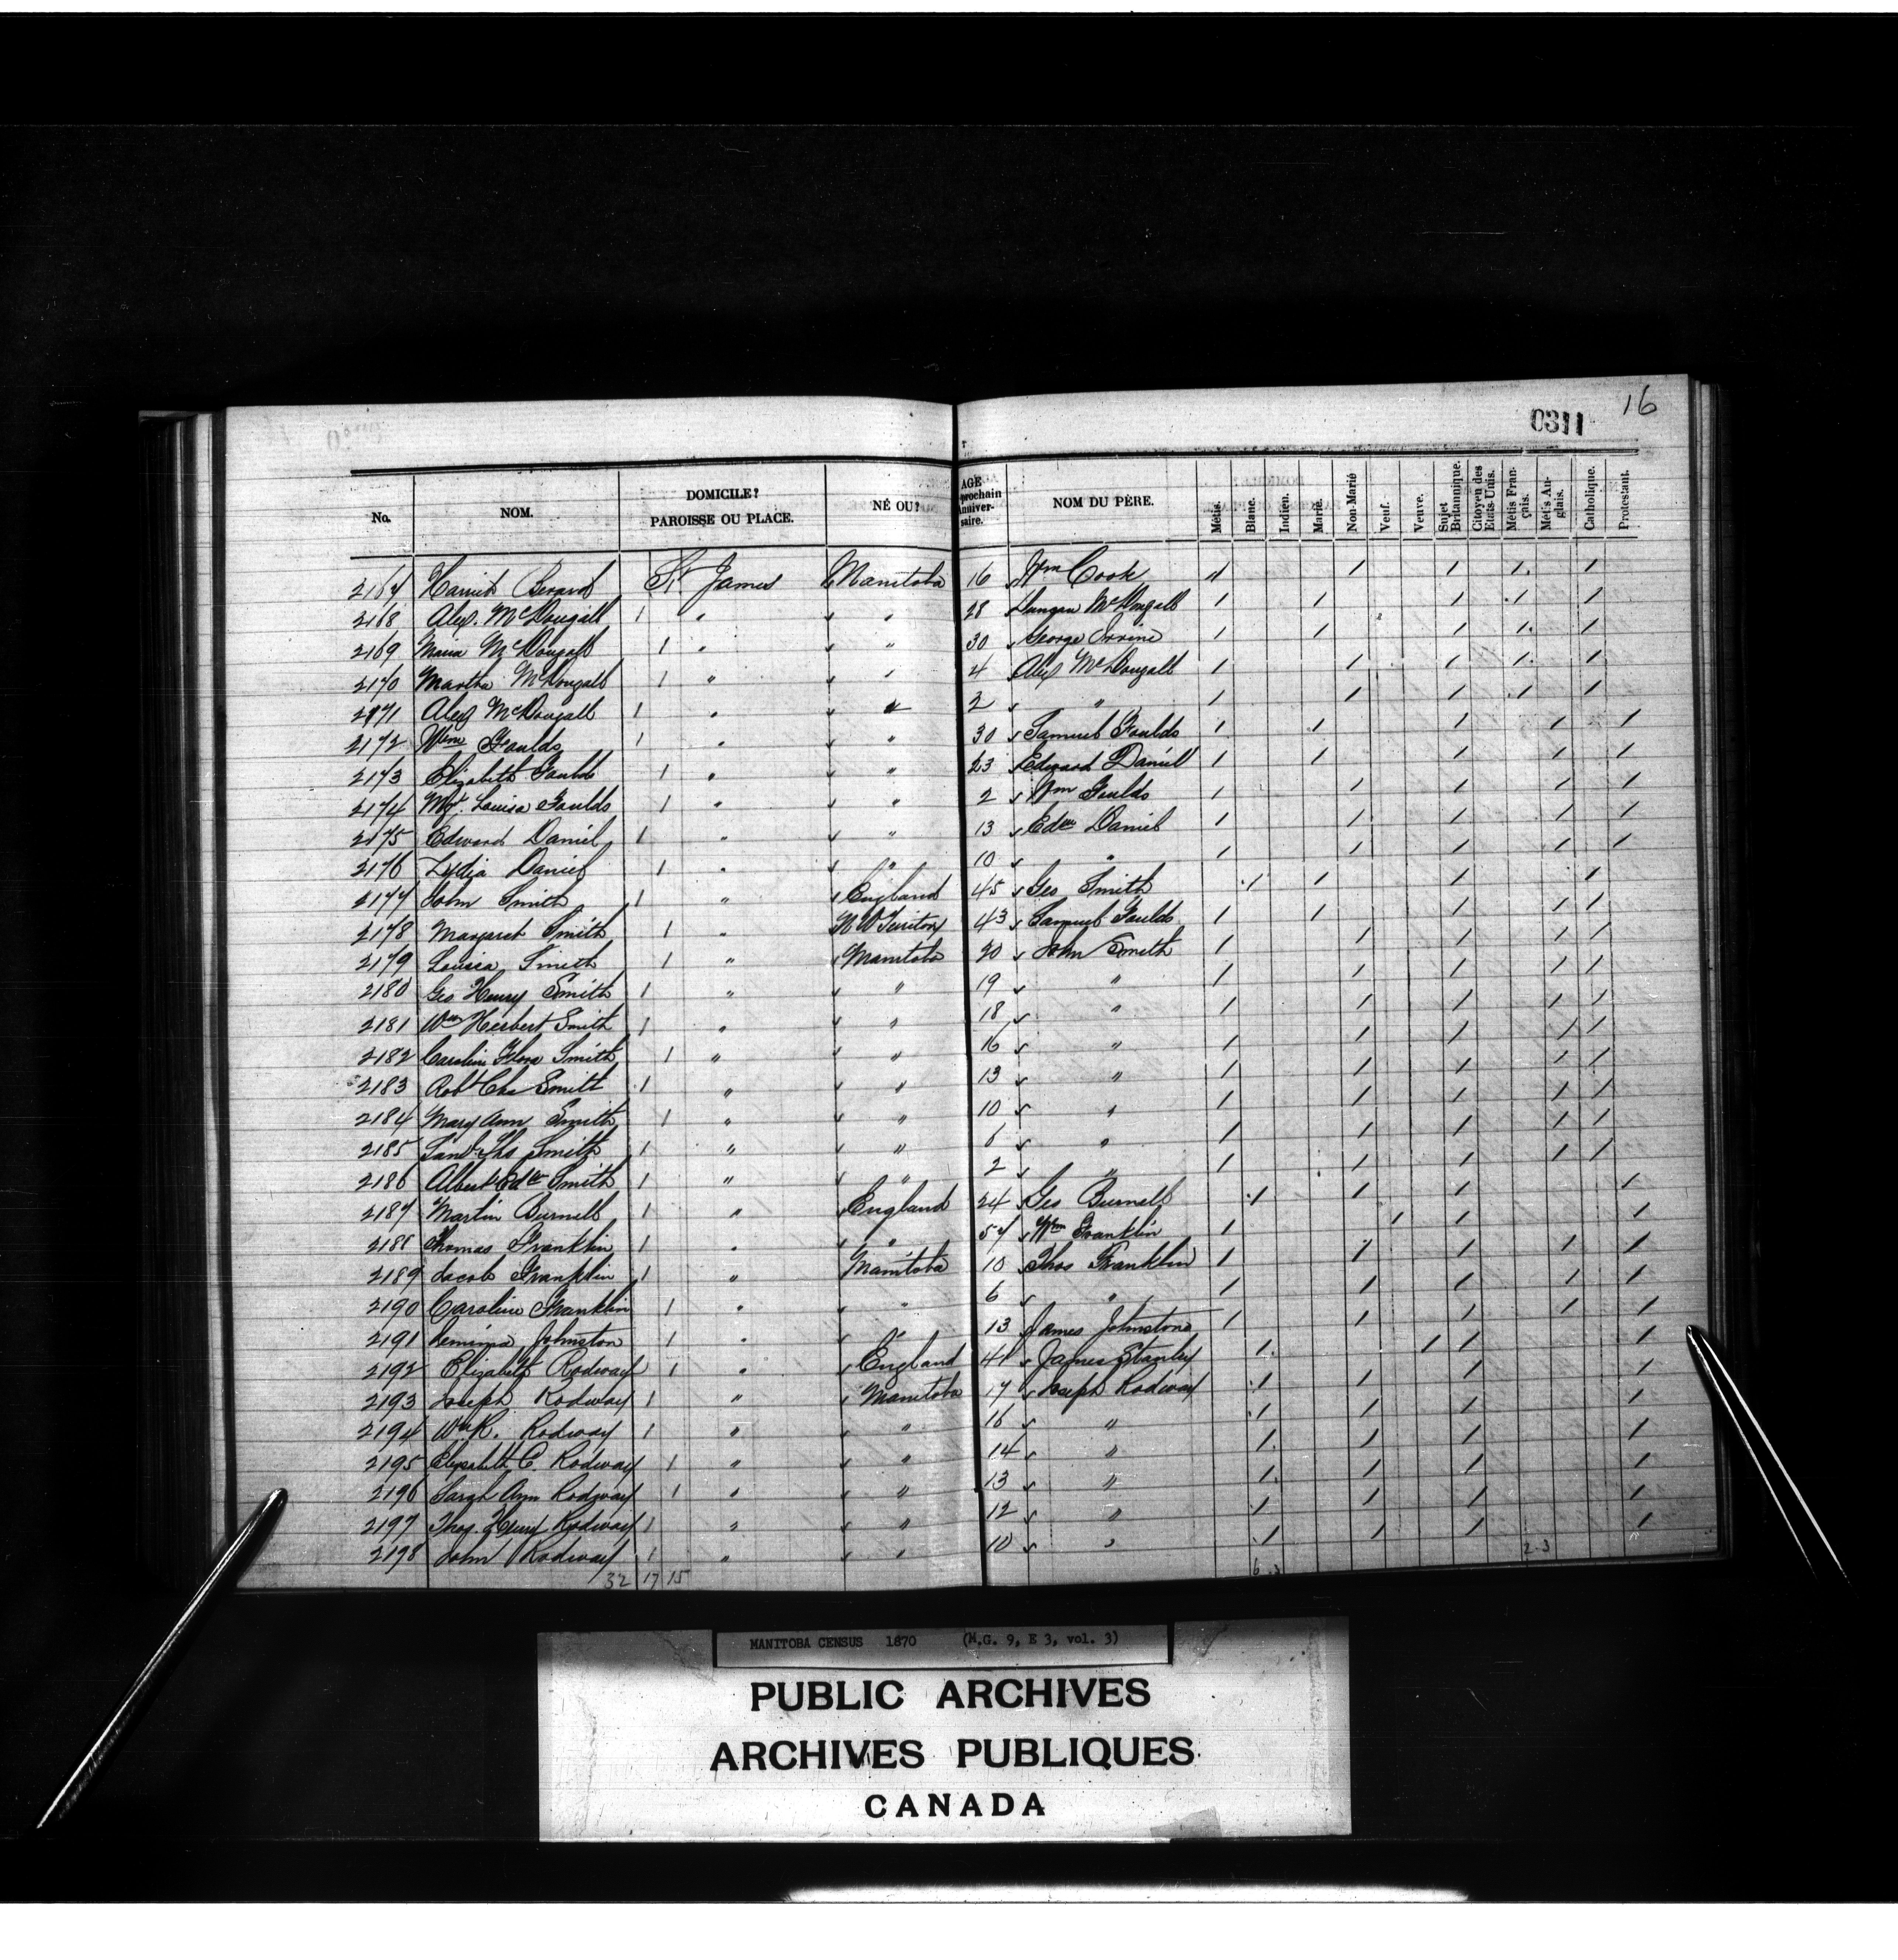 16
0311
No. NOM. DOMICILE? PAROISSE OU PLACE. NÉ OU? AGE prochain Anniver-saire. NOM DU PÈRE. Métis. Blanc. Indien. Marié. Non-Marié Veuf. Veuve. Sujet Britannique. Citoyen des Etats-Unis. Métis Fran-çais. Métis An-glais. Catholique. Protestant.
2167 Harriet Berard St. James Manitoba 16 Wm Cook / / / / /
2168 Alex. McDougall 1 " " 28 Duncan McDougall / / / / /
2169 Maria McDougall 1 " " 30 George Irvine / / / / /
2170 Martha McDougall 1 " " 4 Alex McDougall / / / / /
2171 Alex McDougall 1 " " 2 " / / / / /
2172 Wm Foulds 1 " " 30 Samuel Foulds / / / / /
2173 Elizabeth Foulds 1 " " 23 Edward Daniel / / / / /
2174 Mgt. Louisa Foulds 1 " " 2 Wm Foulds / / / / /
2175 Edward Daniel 1 " " 13 Edw Daniel / / / / /
2176 Lydia Daniel 1 " " 10 " / / / / /
2177 John Smith 1 " England 45 Geo Smith / / / /
2178 Margaret Smith 1 " N W Territory 43 Samuel Foulds / / / / /
2179 Louisa Smith 1 " Manitoba 20 John Smith / / / / /
2180 Geo Henry Smith 1 " " 19 " / / / / /
2181 Wm Herbert Smith 1 " " 18 " / / / / /
2182 Caroline Flora Smith 1 " " 16 " / / / / /
2183 Robt Chs Smith 1 " " 13 " / / / / /
2184 Mary Ann Smith 1 " " 10 " / / / / /
2185 Thos Smith 1 " " 6 " / / / / /
2186 Albert Edw Smith 1 " " 2 " / / / / /
2187 Martin Burnell 1 " England 24 Geo Burnell / / / /
2188 Thomas Franklin 1 " " 57 Wm Franklin / / / /
2189 Jacob Franklin 1 " Manitoba 10 Thos Franklin / / / / /
2190 Caroline Franklin 1 " " 6 " / / / / /
2191 Jemima Johnston 1 " " 13 James Johnstone / / / / /
2192 Elizabeth Rodway 1 " England 41 James Stanley / / / /
2193 Joseph Rodway 1 " Manitoba 17 Joseph Rodway / / / /
2194 Wm R. Rodway 1 " " 16 " / / / /
2195 Elizabeth C. Rodway 1 " " 14 " / / / /
2196 Sarah Ann Rodway 1 " " 13 " / / / /
2197 Thos. Henry Rodway 1 " " 12 " / / / /
2198 John Rodway 1 " " 10 " / / / /
32 17 15 6 3 2 3
MANITOBA CENSUS 1870 (M.G. 9, E 3, vol. 3)
PUBLIC ARCHIVES
ARCHIVES PUBLIQUES
CANADA